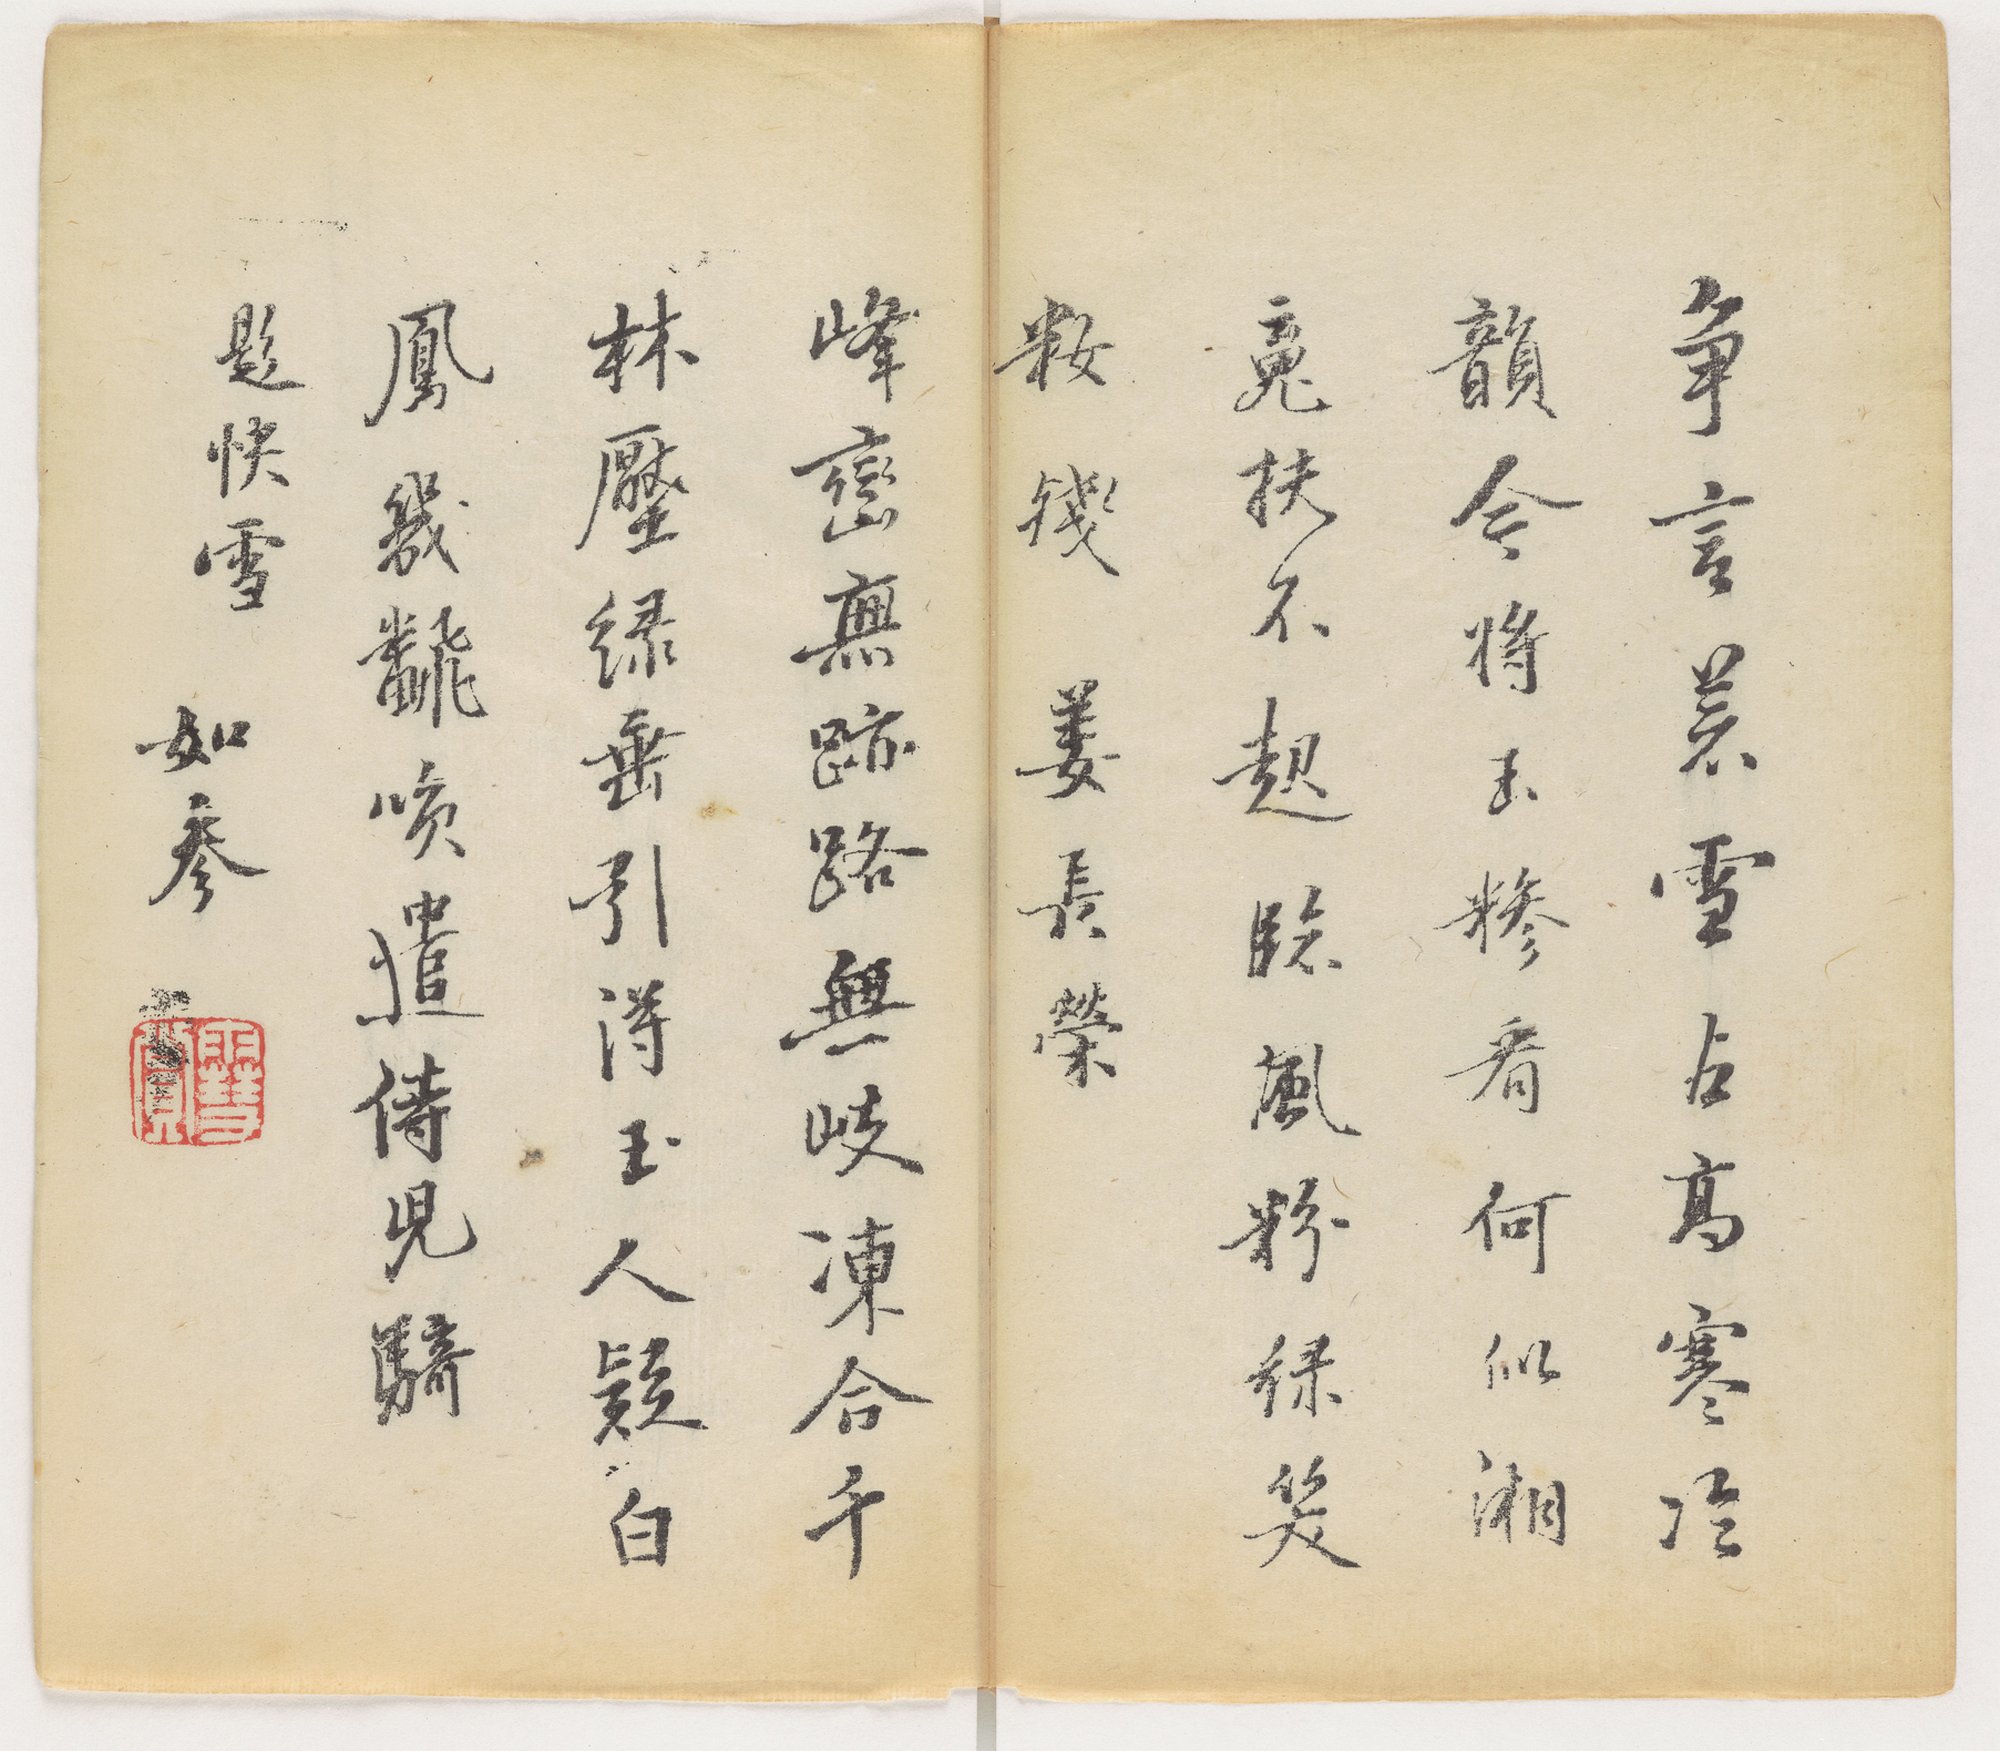 争言雪占高寒冷
韻今將玉糝看何似湘
䰟扶不起臨風粉綠笑
粧殘 姜長榮
峰巒無跡路無岐凍合千
林壓綠垂引得玉人疑白
鳳幾飜喚遣侍兒騎
題快雪 如參